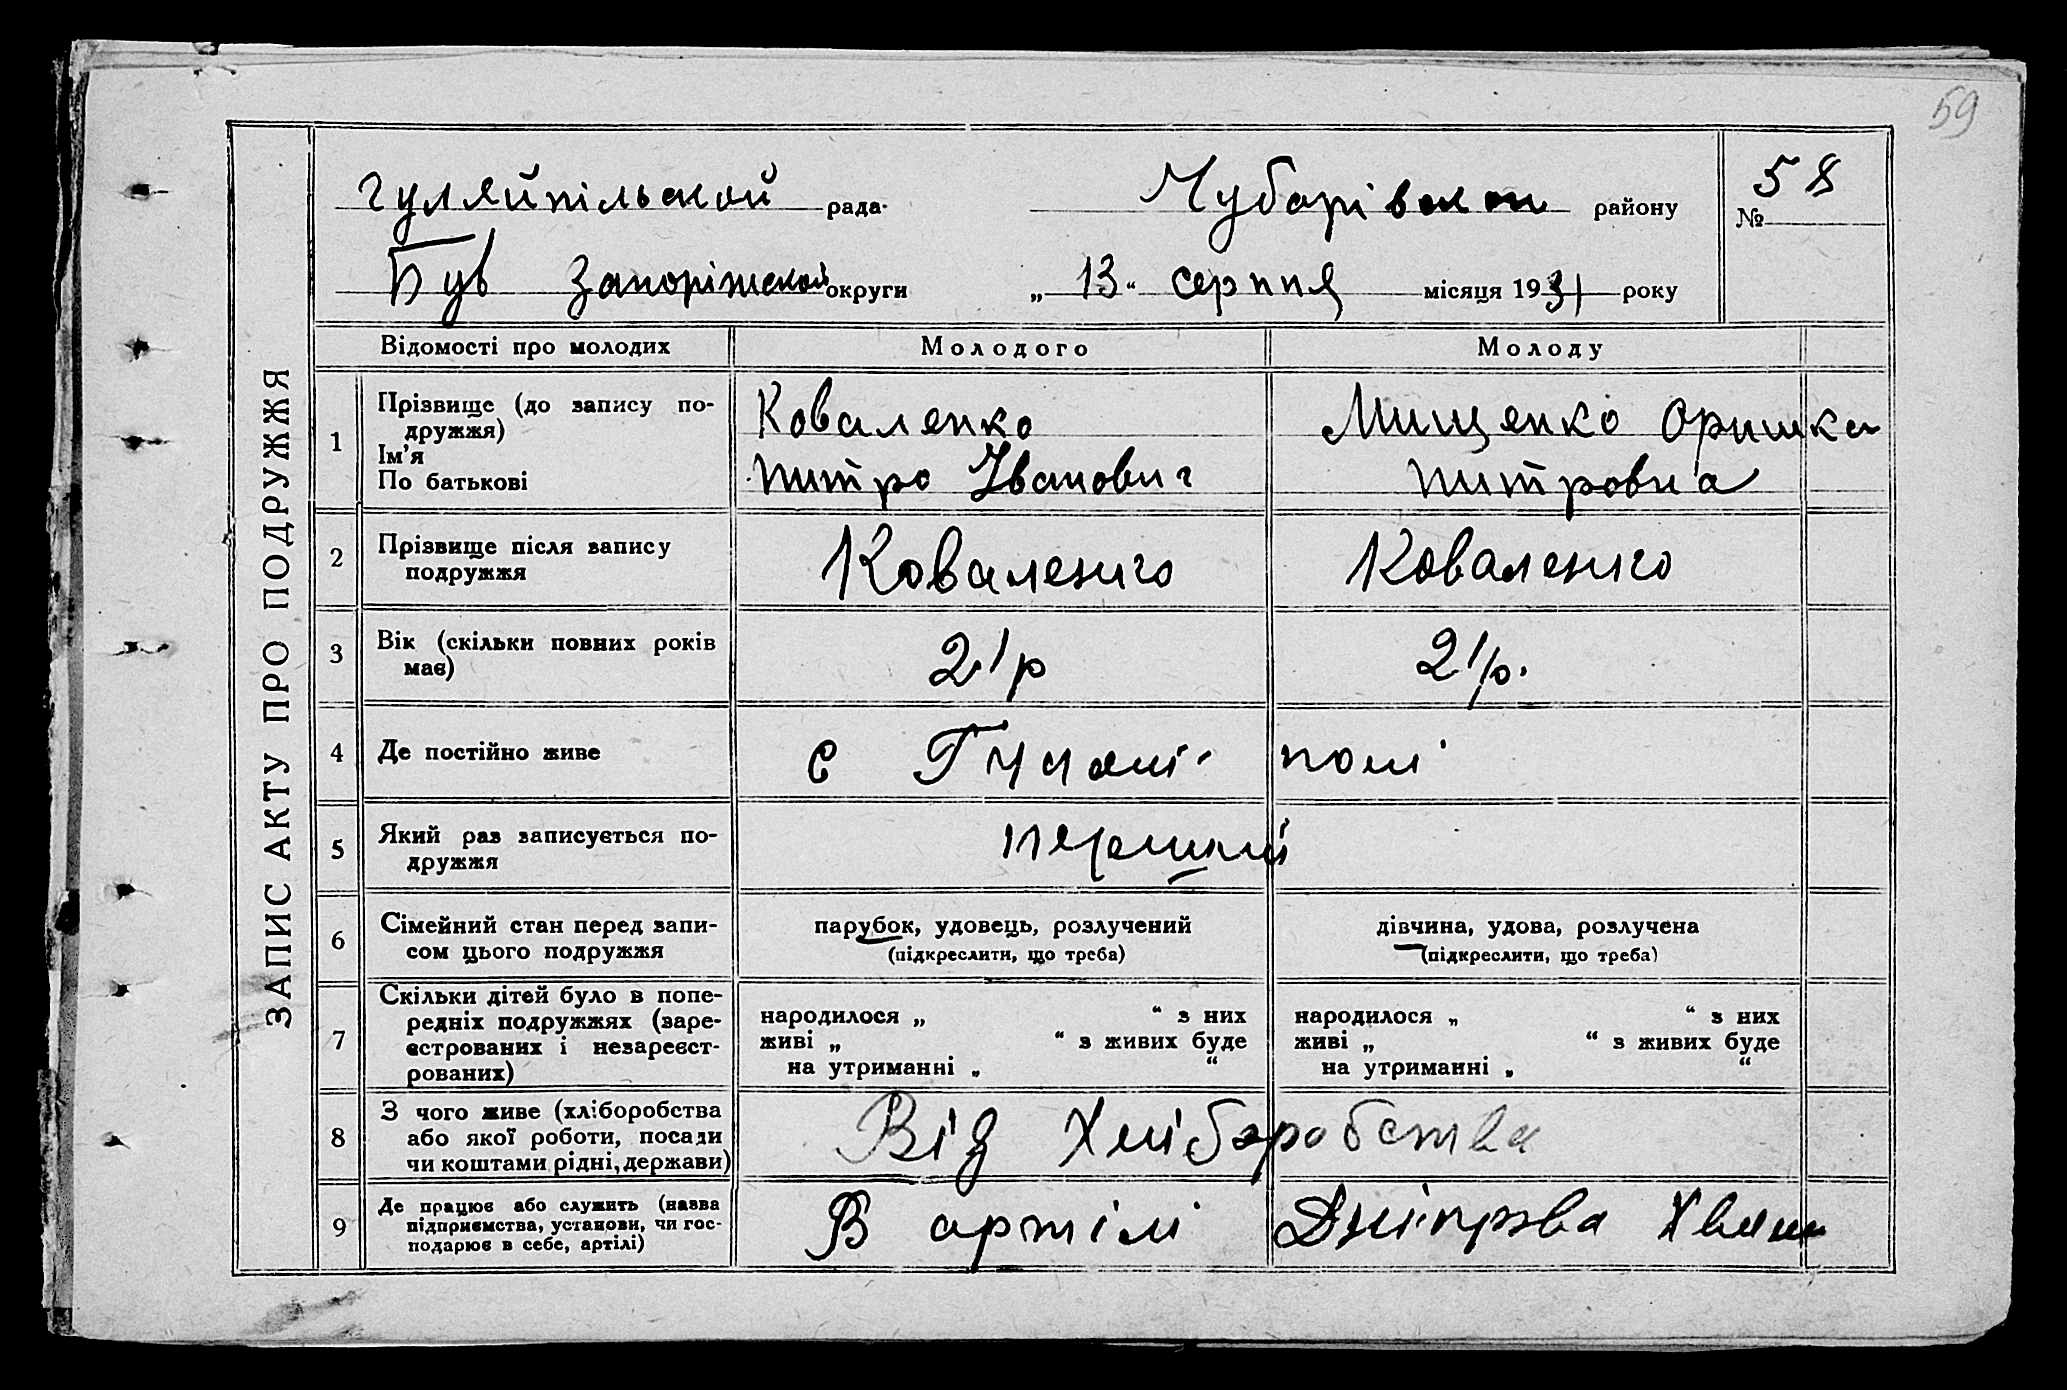 59
Гуляйпільской рада
Чубарівской району
№ 58
Був Запоріжской округи
„ 13 “ серпня місяця 1931 року
ЗАПИС АКТУ ПРО ПОДРУЖЖЯ
Відомості про молодих
Молодого
Молоду
1
Прізвище (до запису по-
дружжя)
Ім’я
По батькові
Коваленко
Митро Іванович
Мищенко Оришка
Митровна
2
Прізвище після запису
подружжя
Коваленко
Коваленко
3
Вік (скільки повних років
має)
21 р
21 р.
4
Де постійно живе
с Гуляй-полі
5
Який раз записується по-
дружжя
перший
6
Сімейний стан перед запи-
сом цього подружжя
парубок, удовець, розлучений
(підкреслити, що треба)
дівчина, удова, розлучена
(підкреслити, що треба)
7
Скільки дітей було в попе-
редніх подружжях (заре-
єстрованих і незареєст-
рованих)
народилося „ “ з них
живі „ “ з живих буде
на утриманні „ “
народилося „ “ з них
живі „ “ з живих буде
на утриманні „ “
8
З чого живе (хліборобства
або якої роботи, посади
чи коштами рідні, держави)
Від Хліборобства
9
Де працює або служить (назва
підприємства, установи, чи гос-
подарює в себе, артілі)
В артілі Дніпрова Хвиля